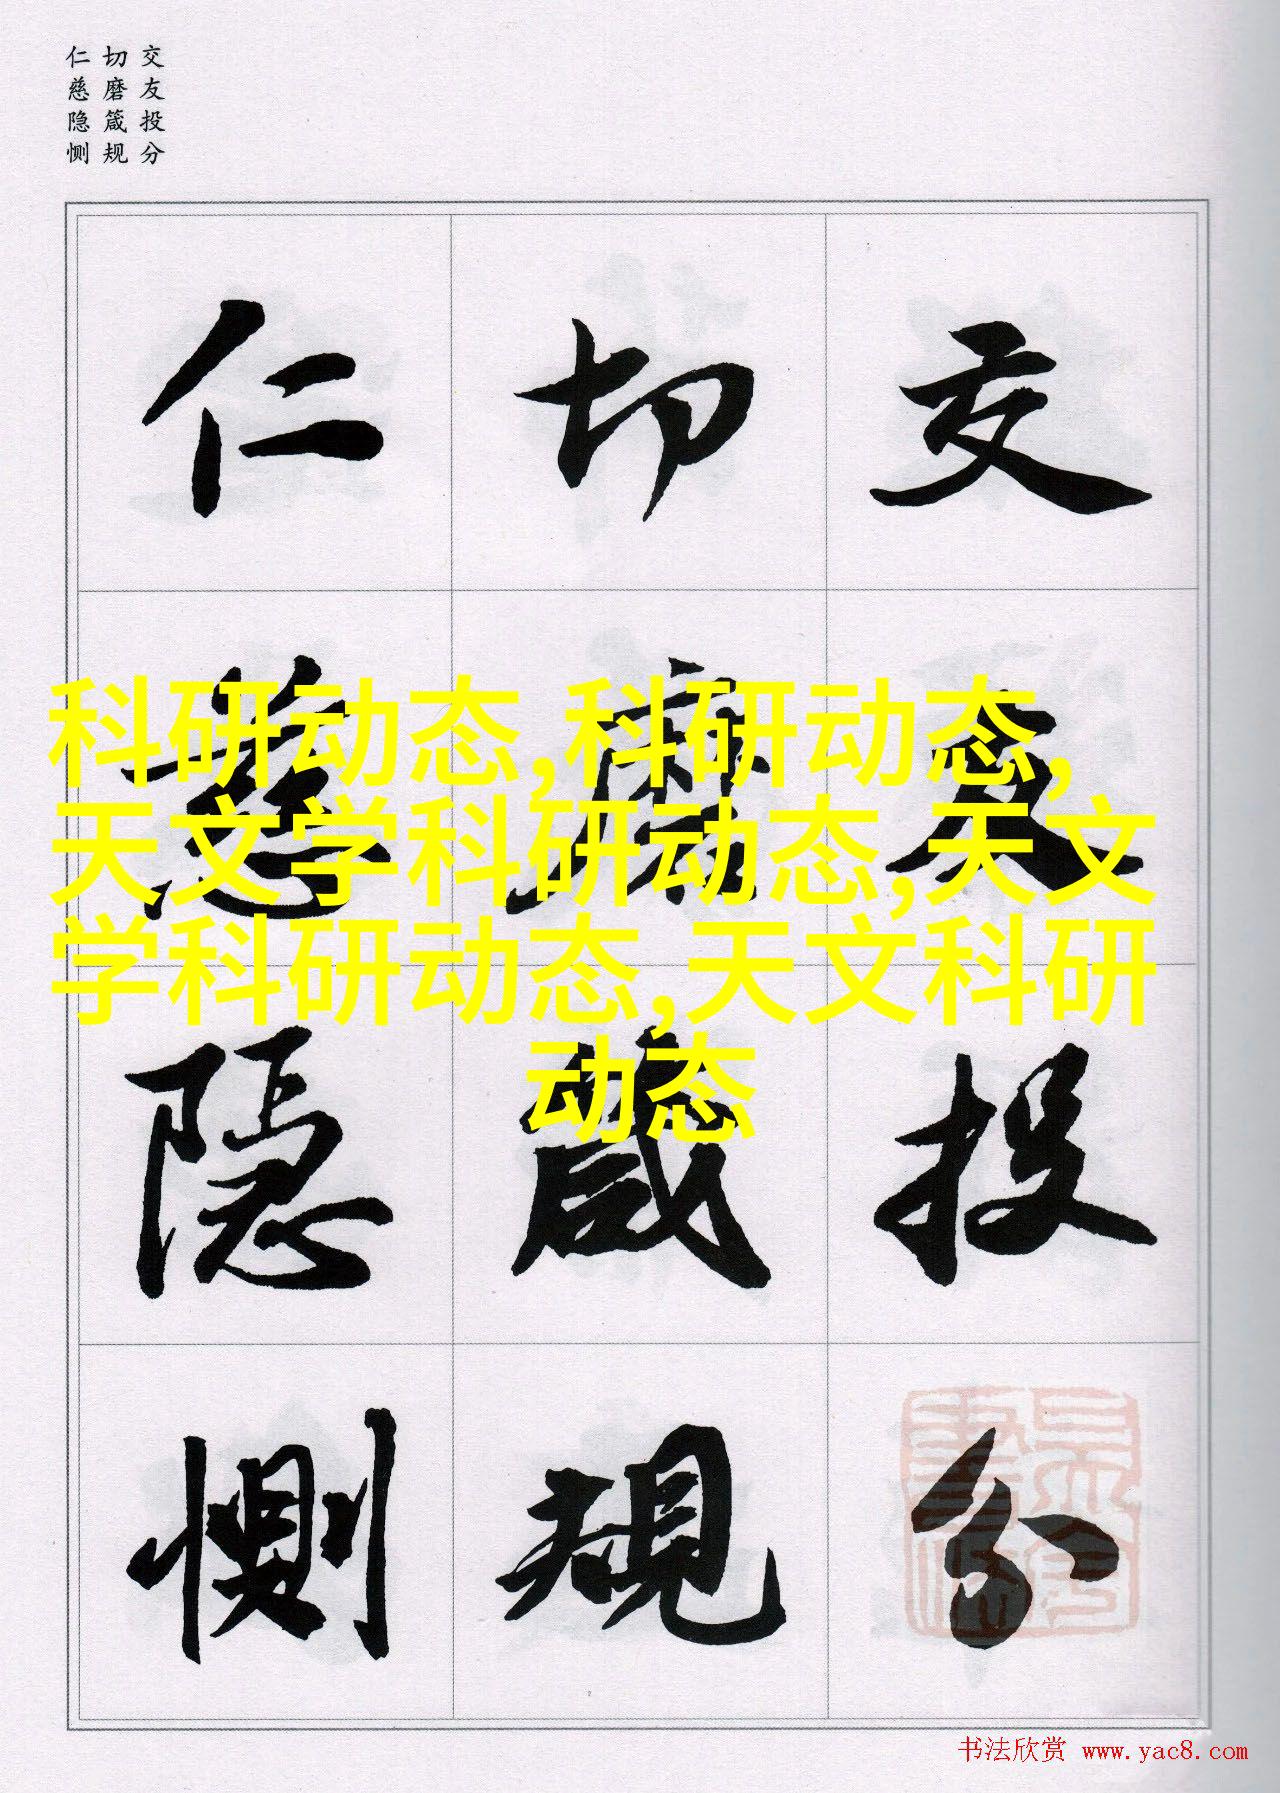 交友投分
切磨箴规
仁慈隐恻
交友投分
切磨箴规
仁慈隐恻
科研动态,科研动态,
天文学科研动态,天文
学科研动态,天文科研
动态
书法欣赏 www.yac8.com